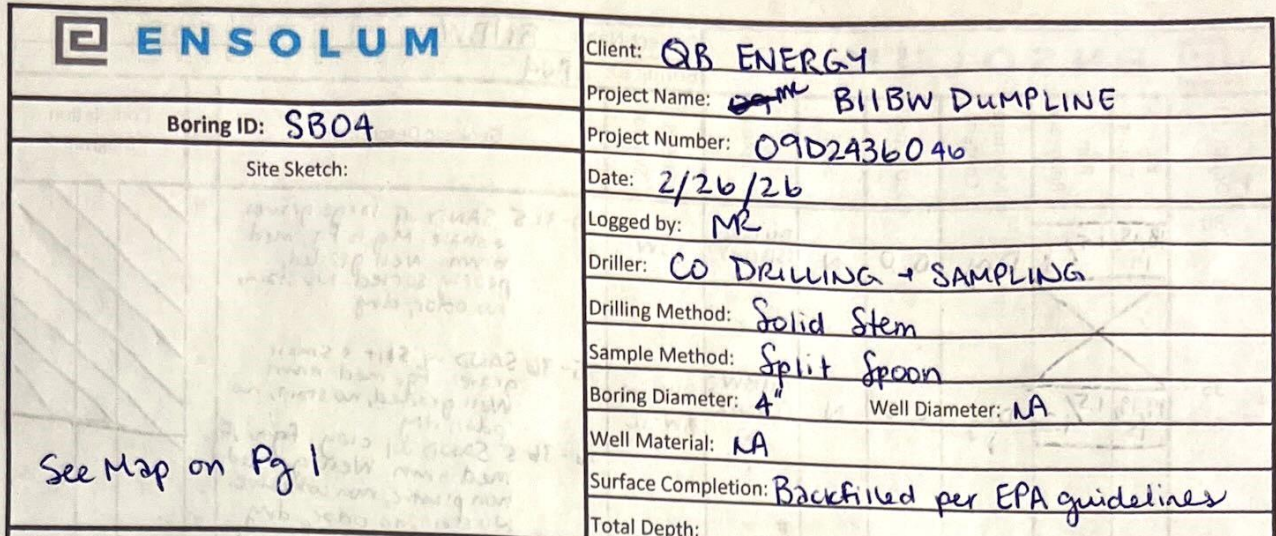 ENSOLUM
Boring ID: SB04
Site Sketch:
See Map on Pg 1
Client: QB ENERGY
Project Name: B11BW DUMPLINE
Project Number: 09D2436046
Date: 2/26/26
Logged by: MR
Driller: CO DRILLING + SAMPLING
Drilling Method: Solid Stem
Sample Method: Split Spoon
Boring Diameter: 4" Well Diameter: NA
Well Material: NA
Surface Completion: Backfilled per EPA guidelines
Total Depth: